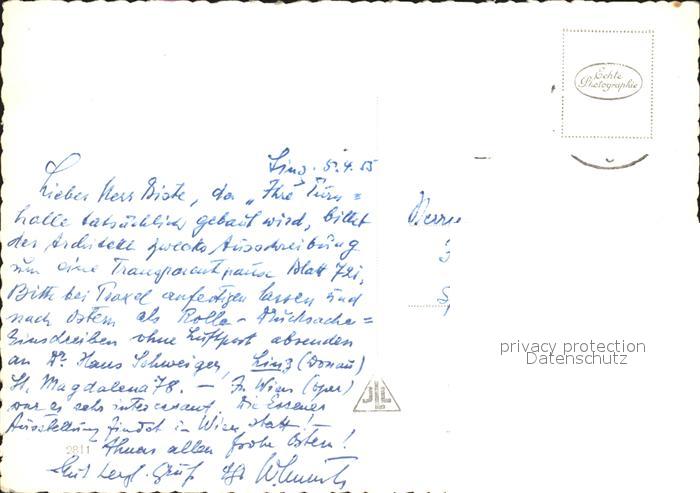 Echte
Photographie
Linz. 5.4.55
Lieber Herr Biste, da „Ihre" Turn=
halle tatsächlich gebaut wird, bittet
der Architekt zwecks Ausschreibung
um eine Transparentpause Blatt 72i,
Bitte bei Traxel anfertigen lassen und
nach Ostern als Rolle - Drucksache =
Einschreiben ohne Luftpost absenden
an Dr. Hans Schweiger, Linz (Donau)
St. Magdalena 78. — In Wien (Oper)
war es sehr interessant. Die Essener
Ausstellung findet in Wien statt! —
Ihnen allen frohe Ostern!
Mit herzl. Gruß Ihr
Herrn
2811
privacy protection
Datenschutz